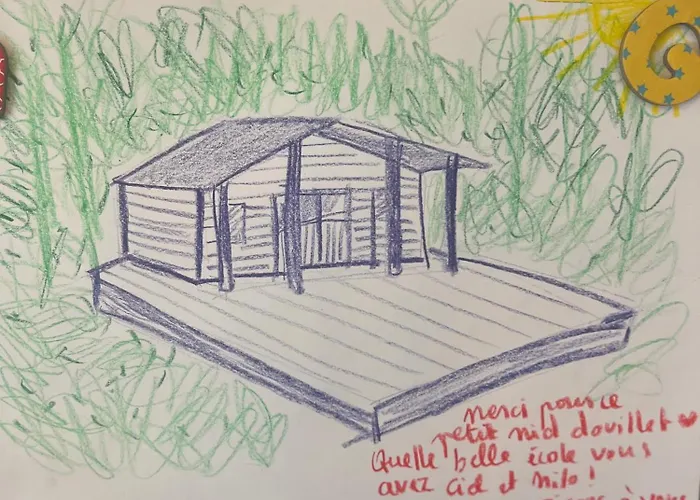 merci pour ce
petit nid douillet ❤
Quelle belle école vous
avez Cid et Milo !